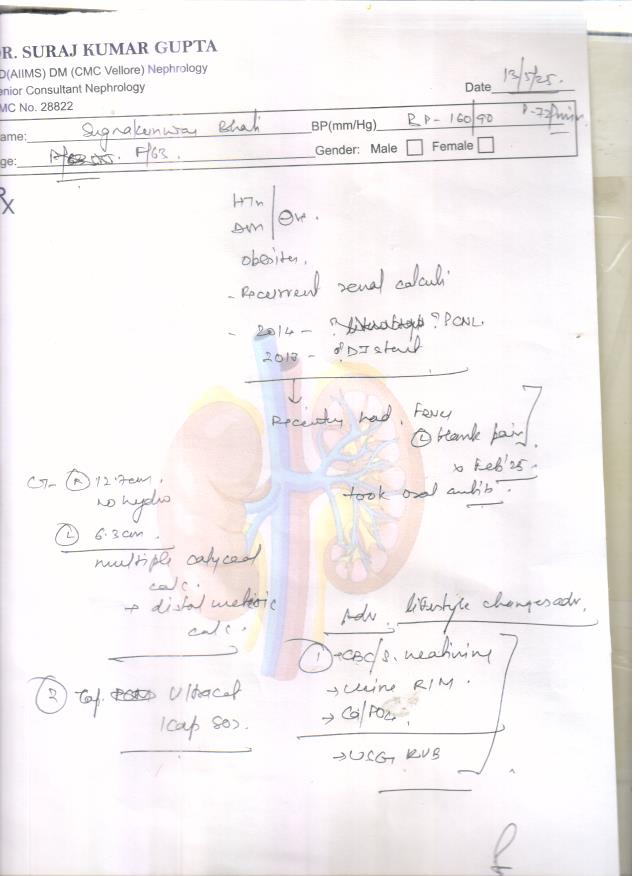 R. SURAJ KUMAR GUPTA
D(AIIMS) DM (CMC Vellore) Nephrology
enior Consultant Nephrology
MC No. 28822
Date 13/5/25.
ame: Sugnakunwar Bhati BP(mm/Hg) BP- 160/90 P-72/min
ge: F/63. Gender: Male Female
Rx
HTn
DM
obesity.
- Recurrent renal calculi
- 2014 - ? PCNL.
2018 - ? DJ stent
Recently had, Fever
(L) flank pain
x Feb'25.
took oral antib.
CT- (R) 12.7cm.
no hydro
(L) 6.3cm.
multiple calyceal
calc.
+ distal ureteric
calc.
Adv. lifestyle changes adv.
(1) → CBC/S. creatinine
→ Urine R/M.
→ Ca/PO4.
→ USG KUB
(2) Cap. Ultracal
1cap SOS.